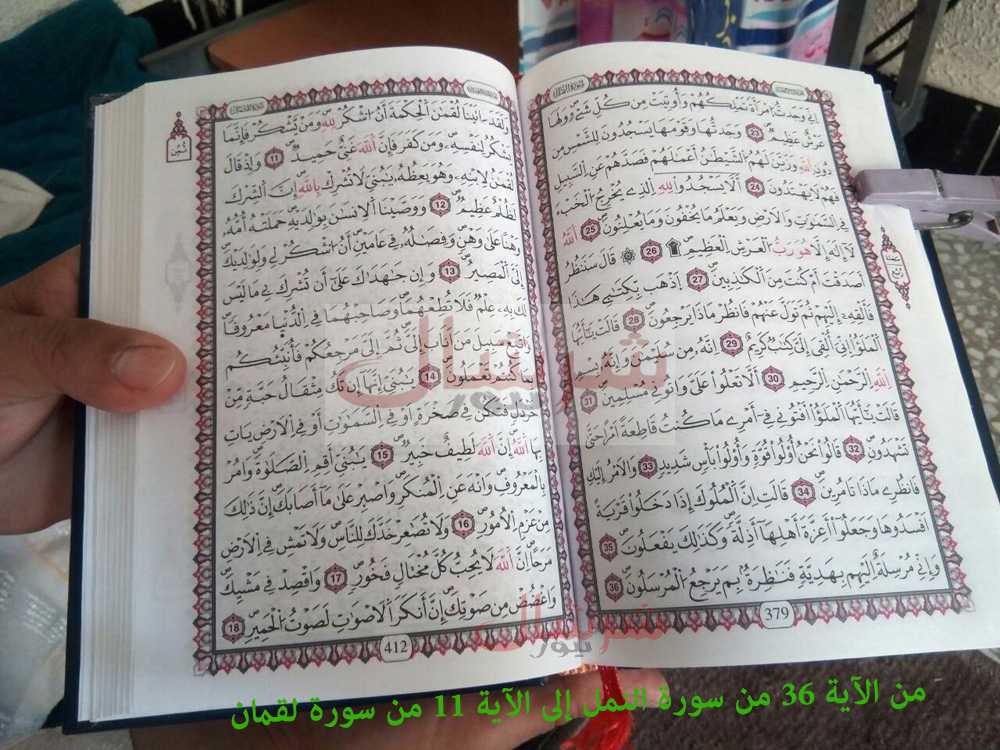 إني وجدت امرأة تملكهم وأوتيت من كل شيء ولها
عرش عظيم 23 وجدتها وقومها يسجدون للشمس من
دون الله وزين لهم الشيطن أعملهم فصدهم عن السبيل
فهم لا يهتدون 24 ألا يسجدوا لله الذي يخرج الخبء
في السموات والارض ويعلم ما يخفون وما يعلنون 25 الله
لا إله إلا هو رب العرش العظيم 26 ۩ ۞ قال سننظر
أصدقت أم كنت من الكذبين 27 اذهب بكتبي هذا
فألقه إليهم ثم تول عنهم فانظر ماذا يرجعون 28 قالت يأيها
الملؤا إني ألقي إلي كتب كريم 29 إنه من سليمن وإنه بسم
الله الرحمن الرحيم 30 ألا تعلوا علي واتوني مسلمين 31
قالت يأيها الملؤا أفتوني في أمري ما كنت قاطعة امرا حتى
تشهدون 32 قالوا نحن أولوا قوة وأولوا بأس شديد 33 والامر إليك
فانظري ماذا تامرين 34 قالت إن الملوك إذا دخلوا قرية
افسدوها وجعلوا أعزة أهلها أذلة وكذلك يفعلون 35
وإني مرسلة اليهم بهدية فنظرة بم يرجع المرسلون 36
379
ثمن
ولقد اتينا لقمن الحكمة أن اشكر لله ومن يشكر فإنما
يشكر لنفسه ومن كفر فإن الله غني حميد 11 وإذ قال
لقمن لابنه وهو يعظه يبني لا تشرك بالله إن الشرك
لظلم عظيم 12 ووصينا الانسن بوالديه حملته أمه
وهنا على وهن وفصله في عامين أن اشكر لي ولوالديك
إلي المصير 13 وإن جهداك على أن تشرك بي ما ليس
لك به علم فلا تطعهما وصاحبهما في الدنيا معروفا
واتبع سبيل من أناب إلي ثم إلي مرجعكم فأنبئكم
بما كنتم تعملون 14 يبني إنها إن تك مثقال حبة من
خردل فتكن في صخرة أو في السموات أو في الارض يات
بها الله إن الله لطيف خبير 15 يبني أقم الصلوة وامر
بالمعروف وانه عن المنكر واصبر على ما أصابك إن ذلك
من عزم الامور 16 ولا تصعر خدك للناس ولا تمش في الارض
مرحا إن الله لا يحب كل مختال فخور 17 واقصد في مشيك
واغضض من صوتك إن أنكر الاصوت لصوت الحمير 18
412
شرشال
نيوز
شرشال
نيوز
من الآية 36 من سورة النمل إلى الآية 11 من سورة لقمان